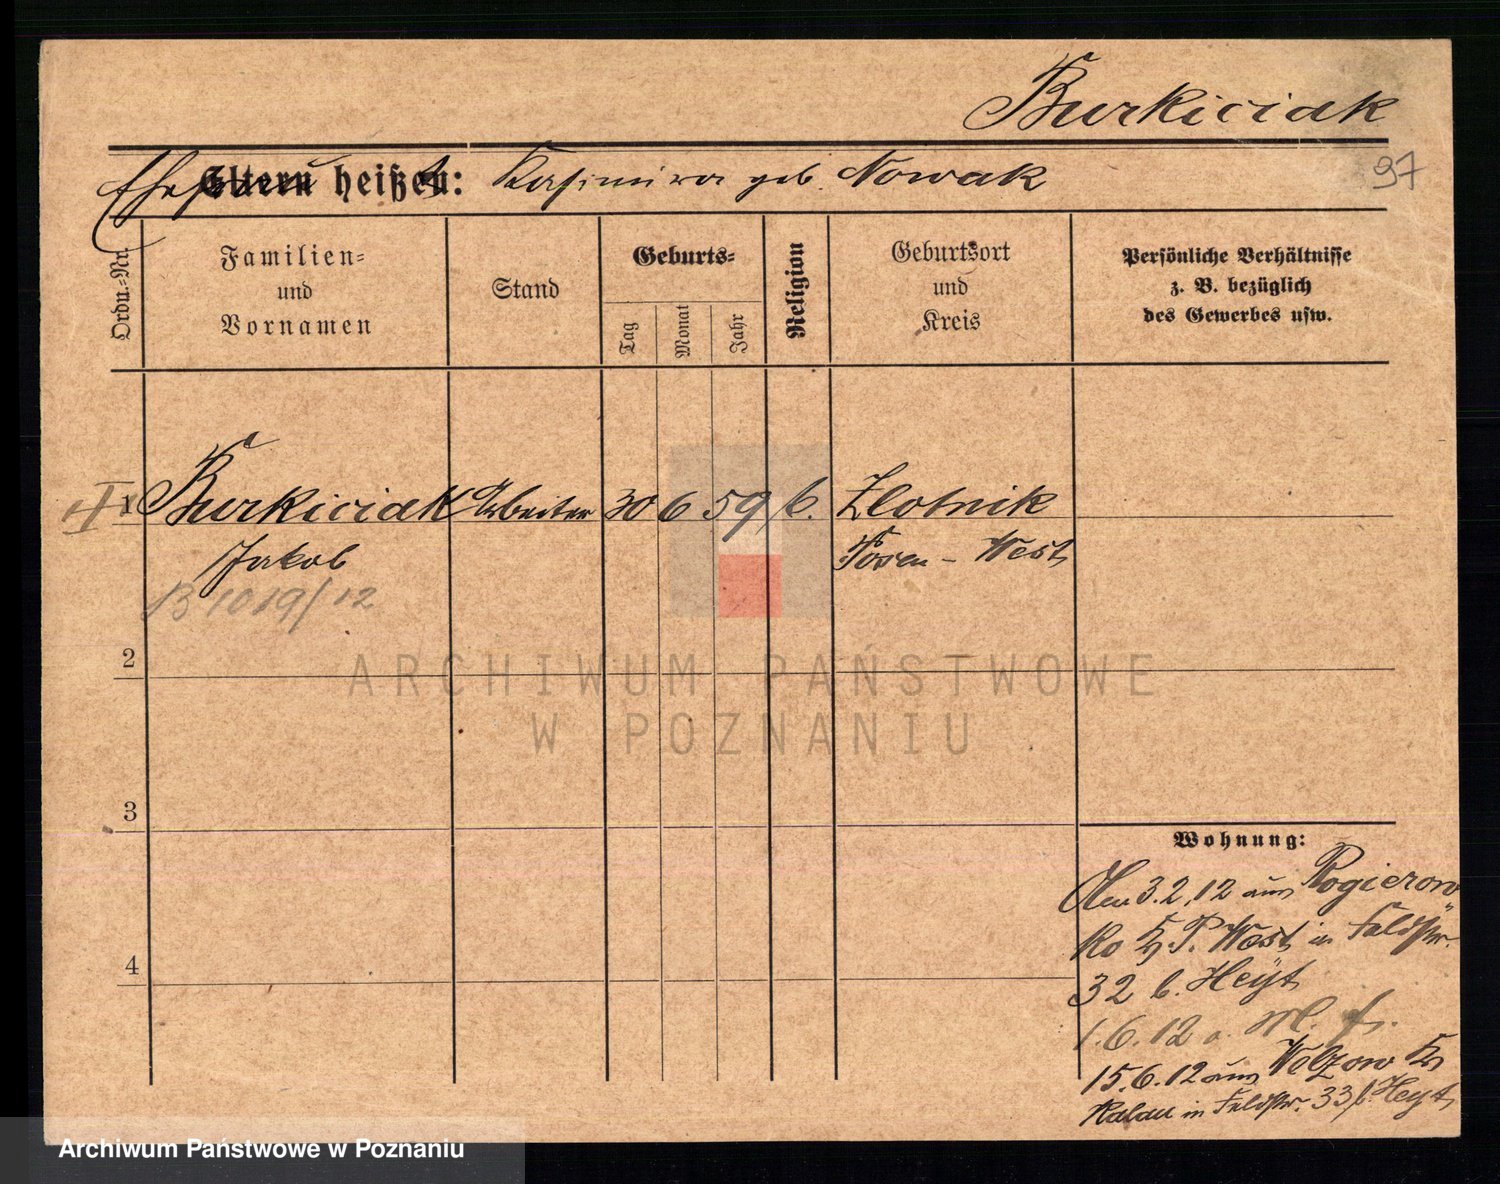 Burkiciak
97
Ehefrau Eltern heißen: Kasimira geb. Nowak
Ordn.-Nr.
Familien-
und
Vornamen
Stand
Geburts-
Tag
Monat
Jahr
Religion
Geburtsort
und
Kreis
Persönliche Verhältnisse
z. B. bezüglich
des Gewerbes usw.
1 Burkiciak Arbeiter 30 6 59 k. Zlotnik
Jakob Posen - West
B 1019/12
2
3
4
Wohnung:
3.2.12 aus Rogierow
P. West in Feldstr.
32 b. Heyt
1.6.12 a.
15.6.12 aus Welzow Kr
Kalau in Feldstr. 33 b. Heyt
ARCHIWUM PAŃSTWOWE
W POZNANIU
Archiwum Państwowe w Poznaniu